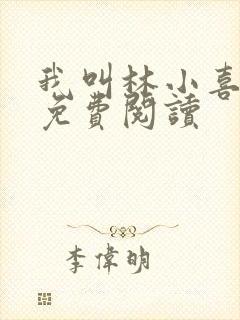 我叫林小喜
免費閱讀
李偉明